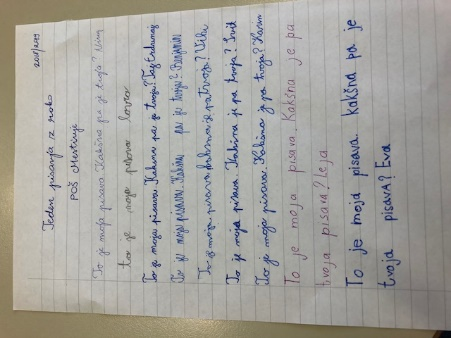 2018/2019
Teden pisanja z roko
POŠ Mestinje
To je moja pisava. Kakšna pa je tvoja?
to je moja pisava
To je moja pisava. Kakšna pa je tvoja?
To je moja pisava. Kakšna pa je tvoja? Benjamin
To je moja pisava kakšna je pa tvoja?
To je moja pisava. Kakšna je pa tvoja?
To je moja pisava. Kakšna je pa tvoja?
To je moja pisava. Kakšna je pa
tvoja pisava? Leja
To je moja pisava. kakšna pa je
tvoja pisavA? Eva